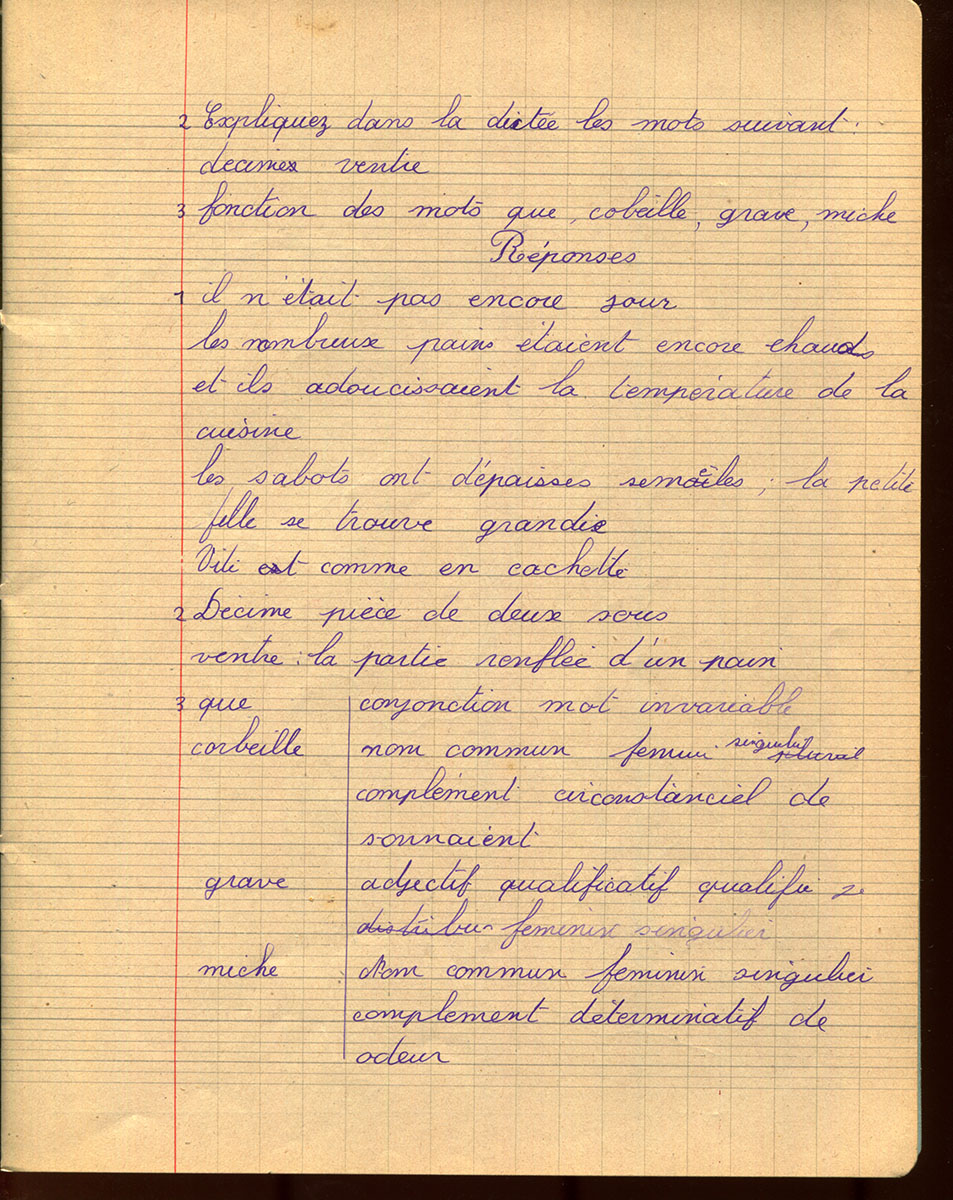 2 Expliquez dans la dictée les mots suivant :
decimes ventre
3 fonction des mots que, cobeille, grave, miche
Réponses
1 il n'était pas encore jour
les nombreux pains étaient encore chauds
et ils adoucissaient la temperature de la
cuisine
les sabots ont d'épaisses semelles ; la petite
fille se trouve grandie
Viti est comme en cachette
2 Décime pièce de deux sous
ventre : la partie renflée d'un pain
3 que conjonction mot invariable
corbeille nom commun femin singulier pluriel
complement circonstanciel de
sonnaient
grave adjectif qualificatif qualifie
distribu feminin singulier
miche Nom commun feminin singulier
complement déterminatif de
odeur